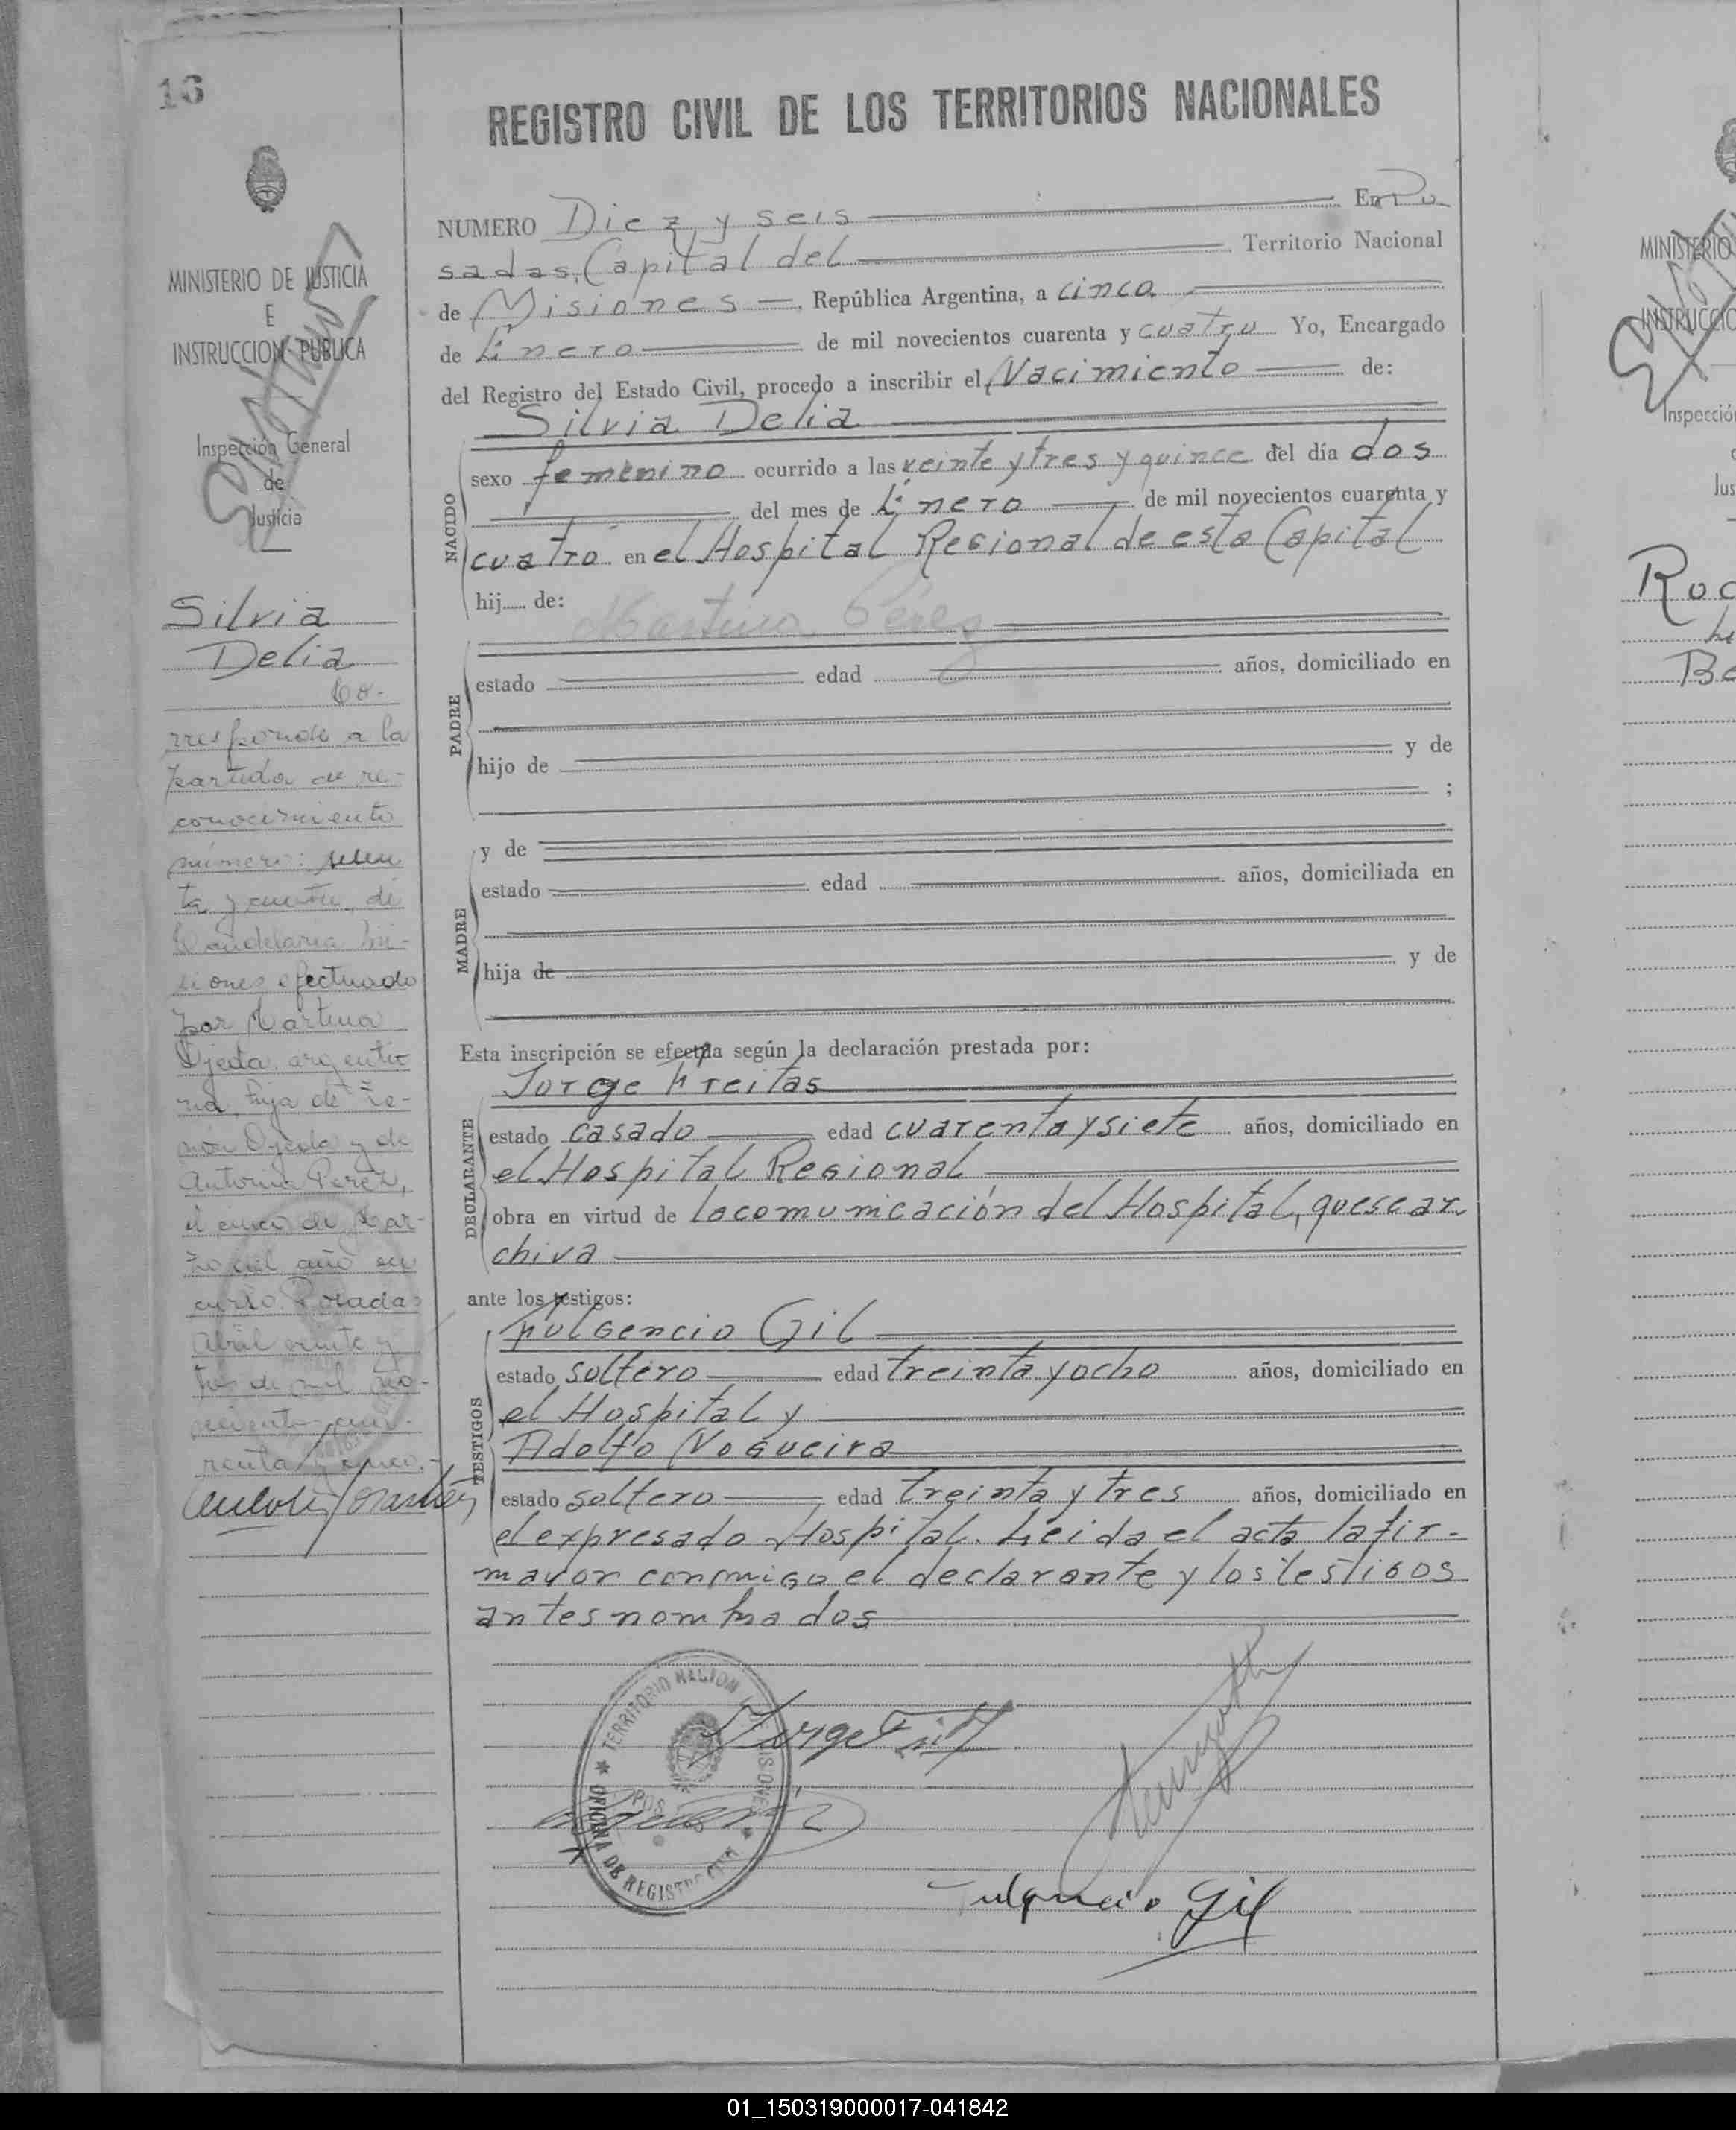 16
MINISTERIO DE JUSTICIA
E
INSTRUCCION PUBLICA
Inspección General
de
Justicia
Silvia
Delia
Co-
rresponde a la
partida de re-
conocimiento
número:
ta y cuatro, de
Candelaria Mi-
siones efectuado
por Martina
Ojeda, argenti-
na, hija de Ze-
non Ojeda y de
Antonia Perez,
el cinco de Mar-
zo del año en
curso. Posadas
Abril veinte y
tres de mil no-
vecientos cua-
renta y cinco.-
REGISTRO CIVIL DE LOS TERRITORIOS NACIONALES
NUMERO Diez y seis En Po
sadas, Capital del Territorio Nacional
de Misiones, República Argentina, a cinco
de Enero de mil novecientos cuarenta y cuatro Yo, Encargado
del Registro del Estado Civil, procedo a inscribir el Nacimiento de:
Silvia Delia
NACIDO
sexo femenino ocurrido a las veinte y tres y quince del día dos
del mes de Enero de mil novecientos cuarenta y
cuatro en el Hospital Regional de esta Capital
hij de:
Martina Pérez
PADRE
estado edad años, domiciliado en
hijo de y de
;
y de
MADRE
estado edad años, domiciliada en
hija de y de
Esta inscripción se efectúa según la declaración prestada por:
Jorge Freitas
DECLARANTE
estado casado edad cuarenta y siete años, domiciliado en
el Hospital Regional
obra en virtud de la comunicación del Hospital, que se ar
chiva
ante los testigos:
Fulgencio Gil
TESTIGOS
estado soltero edad treinta y ocho años, domiciliado en
el Hospital y
Adolfo Nogueira
estado soltero edad treinta y tres años, domiciliado en
el expresado Hospital. Leida el acta la fir-
mavor conmigo el declarante y los testigos
antes nombrados
TERRITORIO NACION MISIONES
POS
OFICINA DE REGISTRO CIVIL
Fulgencio Gil
MINISTERIO
INSTRUCCIO
Inspecció
Jus
Roc
Be
01_150319000017-041842